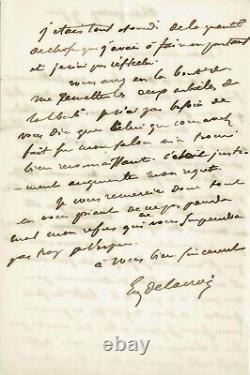 j'étais tout étourdi de la quantité
de choses que j'avais à faire en partant
et j'avais peu réfléchi.
vous avez eu la bonté de
me remettre deux articles de
je n'ai pas besoin de
vous dire que celui qui concerne
fait sur mon salon m'a trouvé
bien reconnaissant. c'était juste-
ment augmenter mon regret.
Je vous remercie donc tout
en vous priant de ne pas prendre
mal mon refus qui ne vous surprendra
pas trop j'espère.
à vous bien sincèrement
EugDelacroix